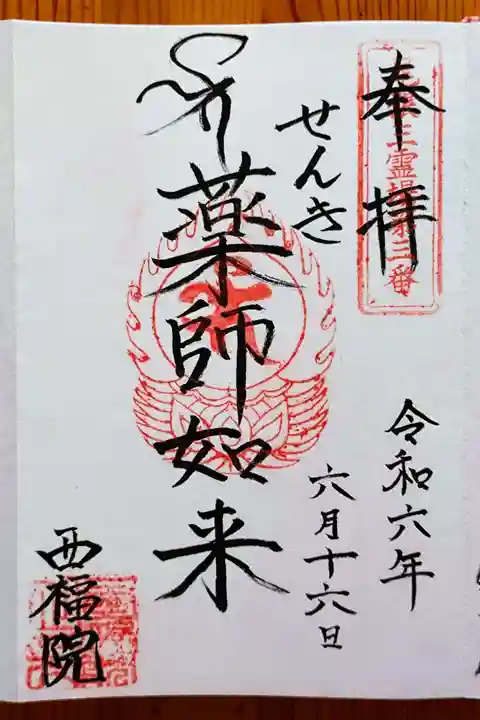 奉拝
三霊場第三番
令和六年
六月十六日
せんき
薬師如来
西福院